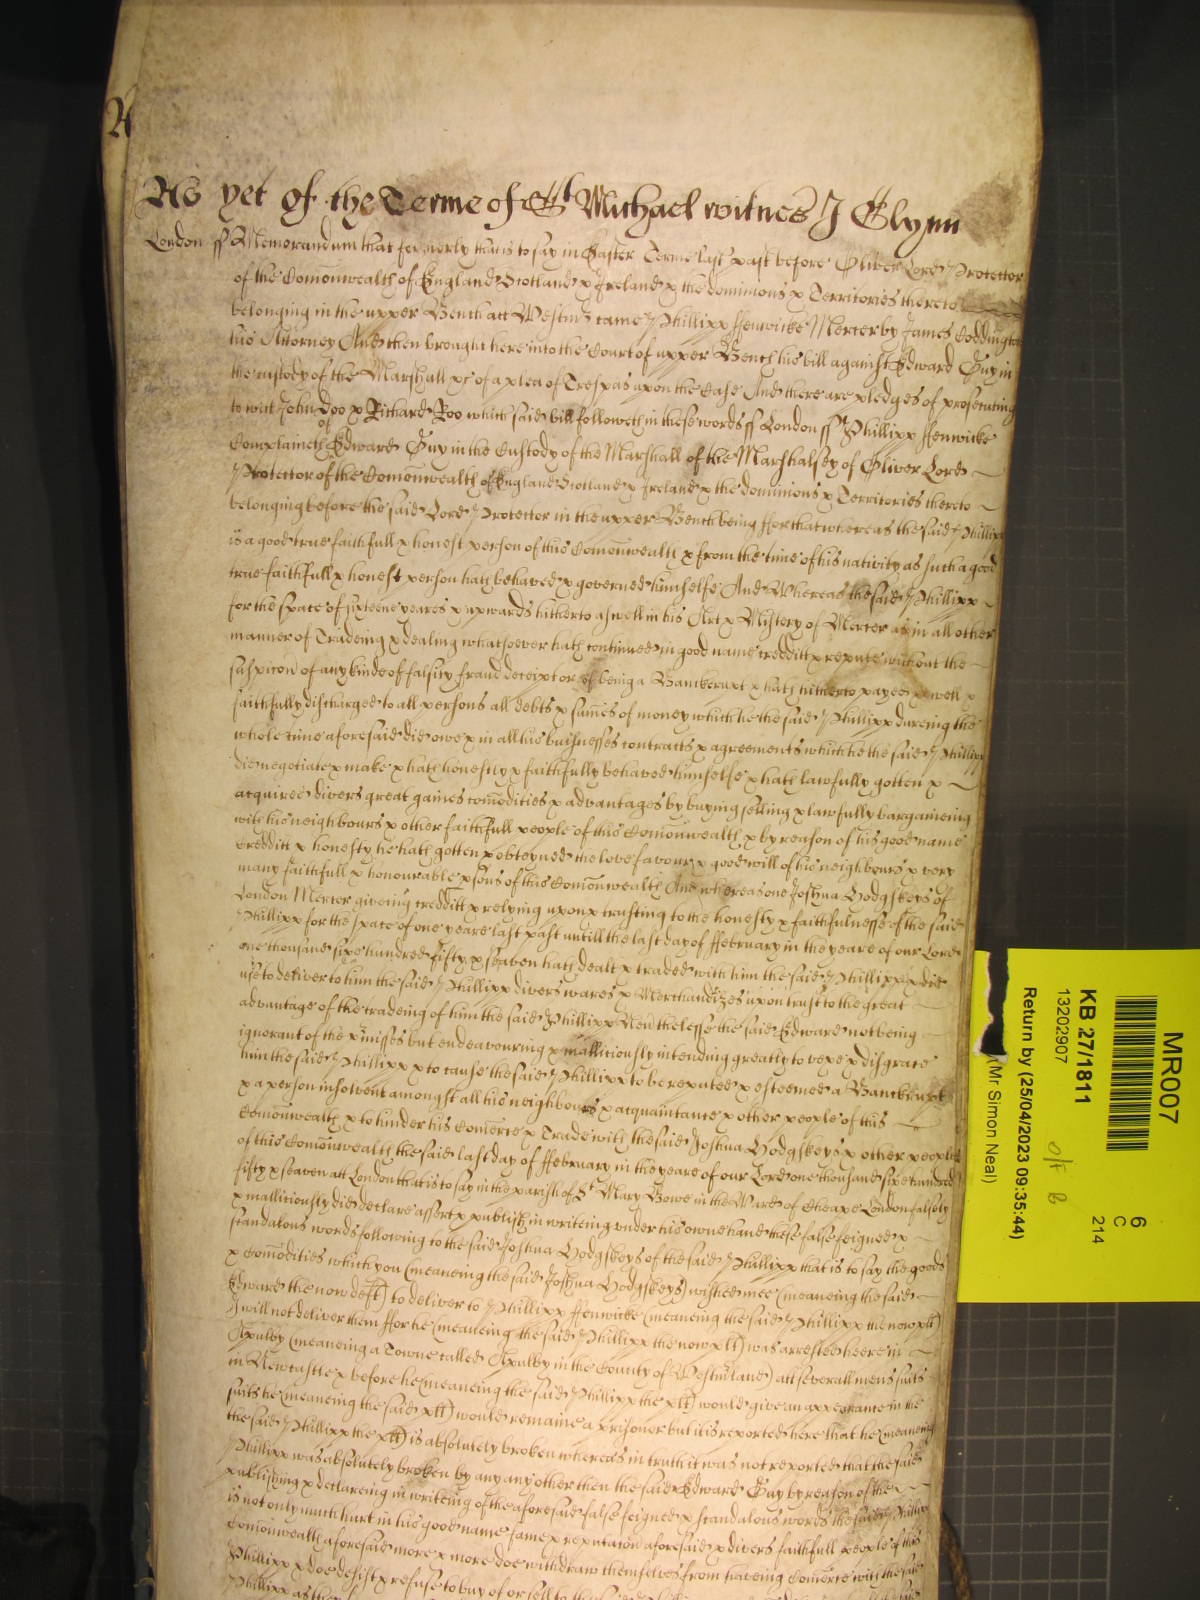 As yet of the Terme of St Michael witnes J Glynn
London ss Memorandum that formerly that is to say in Easter Terme last past before Oliver Lord Protector
of the Comonwealth of England Scotland & Ireland & the dominions & Territories thereto
belonging in the upper Bench att Westmr came Phillipp Fenwicke Mercer by James Coddington
his Attorney And then brought here into the Court of upper Bench his bill against Edward Guy in
the custody of the Marshall &c of a plea of Trespas upon the Case And there are pledges of prosecuting
to witt John Doo & Richard Roo which said bill followeth in these words ss London ss Phillipp ffenwicke
Complaineth of Edward Guy in the Custody of the Marshall of the Marshalsey of Oliver Lord
Protector of the Comonwealth of England Scotland & Ireland & the dominions & Territories thereto
belonging before the said Lord Protector in the upper Bench being ffor that whereas the said Phillipp
is a good true faithfull & honest person of this Comonwealth & from the time of his nativity as such a good
true faithfull & honest person hath behaved & governed himselfe And Whereas the said Phillipp
for the space of sixteene yeares & upwards hitherto aswell in his Art & Mistery of Mercer as in all other
manner of Tradeing & dealing whatsoever hath continued in good name credditt & repute without the
suspicon of any kinde of falsity fraud deceipt or of being a Banckerupt & hath hitherto payed & well &
faithfully discharged to all persons all debts & sumes of money which he the said Phillipp dureing the
whole time aforesaid did owe & in all his buisnesses contracts & agreements which he the said Phillipp
did negotiate & make & hath honestly & faithfully behaved himselfe & hath lawfully gotten &
acquired divers great gaines comodities & advantages by buying selling & lawfully bargaineing
with his neighbours & other faithfull people of this Comonwealth & by reason of his good name
creditt & honesty he hath gotten & obteyned the love favour & good will of his neighbours & very
many faithfull & honourable psons of this Comonwealth And whereas one Joshua Hodgskeys of
London Mercer giveing credditt & relying upon & trusting to the honesty & faithfulnesse of the said
Phillipp for the space of one yeare last past untill the last day of ffebruary in the yeare of our Lord
one thousand sixe hundred fifty & seaven hath dealt & traded with him the said Phillipp & did
use to deliver to him the said Phillipp divers wares & Merchandizes upon trust to the great
advantage of the tradeing of him the said Phillipp Nevthelesse the said Edward not being
ignorant of the pmisses but endeavouring & mallitiously intending greatly to vexe & disgrace
him the said Phillipp & to cause the said Phillipp to be reputed & esteemed a Banckerupt
& a person insolvent amongst all his neighbours & acquaintance & other people of this
Comonwealth & to hinder his Comerce & Trade with the said Joshua Hodgskeys & other people
of this Comonwealth the said last day of ffebruary in the yeare of our Lord one thousand sixe hundred
fifty & seaven att London that is to say in the parish of St Mary Bowe in the Ward of Cheape London falsely
& mallitiously did declare assert & publish in writeing under his owne hand these false feigned &
scandalous words following to the said Joshua Hodgskeys of the said Phillipp that is to say the goods
& Comodities which you (meaneing the said Joshua Hodgskeys) wished mee (meaneing the said
Edward the now deft) to deliver to Phillipp ffenwicke (meaneing the said Phillipp the now plt)
I will not deliver them ffor he (meaneing the said Phillipp the now plt) was arrested heere in
Apulby (meaneing a Towne called Apulby in the County of Westmland) att severall mens suits
in Newcastle & before he (meaneing the said Phillipp the plt) would give an appearance in the
suits he (meaneing the said plt) would remaine a prisoner but it is reported here that he (meaneing
the said Phillipp the plt) is absolutely broken whereas in truth it was not reported that the said
Phillipp was absolutely broken by any any other then the said Edward Guy by reason of the
publishing & declareing in writeing of the aforesaid false feigned & scandalous words the said Phillipp
is not only much hurt in his good name fame & reputacon aforesaid & divers faithfull people of this
Comonwealth aforesaid more & more doe withdraw themselves from haveing Comerce with the said
Phillipp & doe desist & refuse to buy of or sell to the said
Phillipp as they
MR007
KB 27/1811
13202907
Return by (25/04/2023 09:35:44)
(Mr Simon Neal)
O/F B
6
C
214